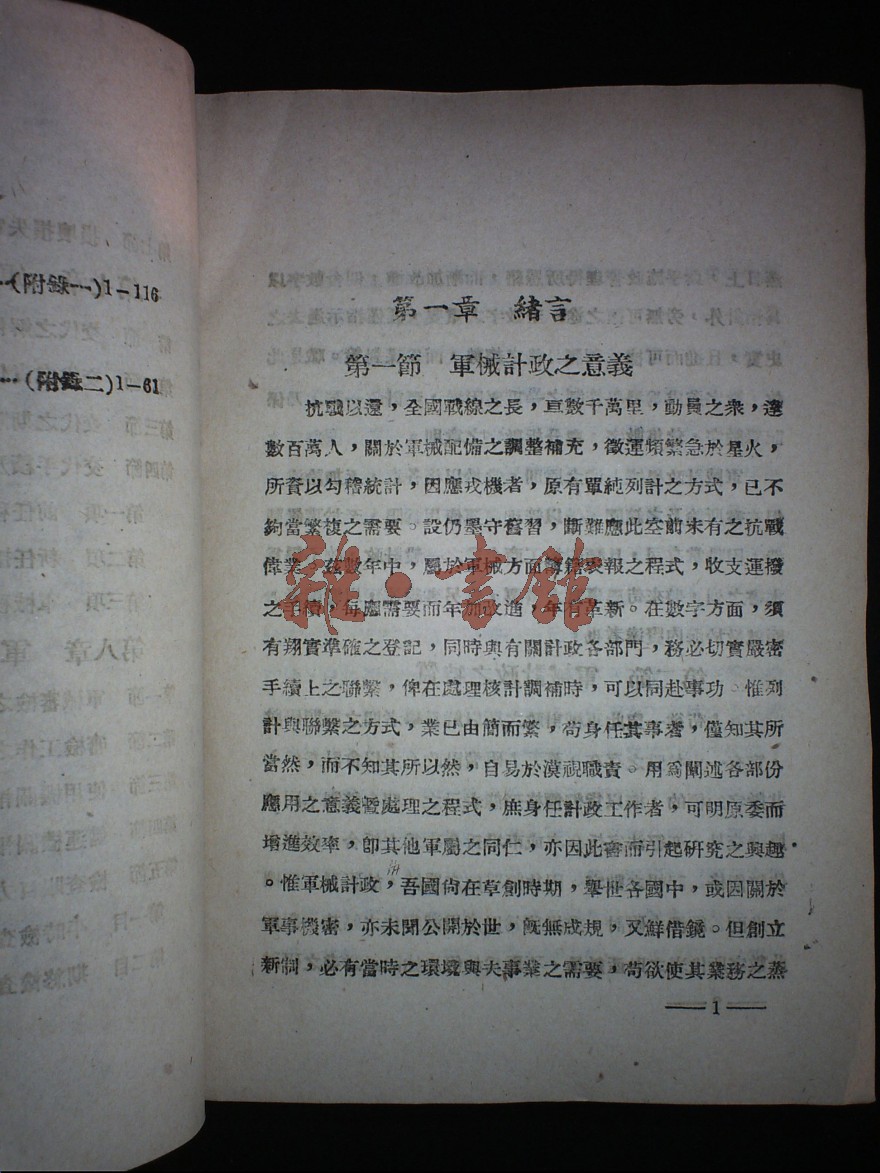 (附錄一)1-116
(附錄二)1-61
第一章 緒言
第一節 軍械計政之意義
抗戰以還，全國戰線之長，亘數千萬里，動員之衆，達
數百萬人，關於軍械配備之調整補充，徵運頻繁急於星火，
所資以勾稽統計，因應戎機者，原有單純列計之方式，已不
夠當繁複之需要。設仍墨守舊習，斷難應此空前未有之抗戰
偉業。茲數年中，屬於軍械方面簿籍表報之程式，收支運撥
之手續，每應需要而年加改進，年有革新。在數字方面，須
有翔實準確之登記，同時與有關計政各部門，務必切實嚴密
手續上之聯繫，俾在處理核計調補時，可以同赴事功。惟列
計與聯繫之方式，業已由簡而繁，苟身任其事者，僅知其所
當然，而不知其所以然，自易於漠視職責。用爲闡述各部份
應用之意義暨處理之程式，庶身任計政工作者，可明原委而
增進效率，卽其他軍屬之同仁，亦因此書而引起研究之興趣
。惟軍械計政，吾國尙在草創時期，舉世各國中，或因關於
軍事機密，亦未聞公開於世，旣無成規，又鮮借鏡。但創立
新制，必有當時之環境與夫事業之需要，苟欲使其業務之蒸
1
雜·書館